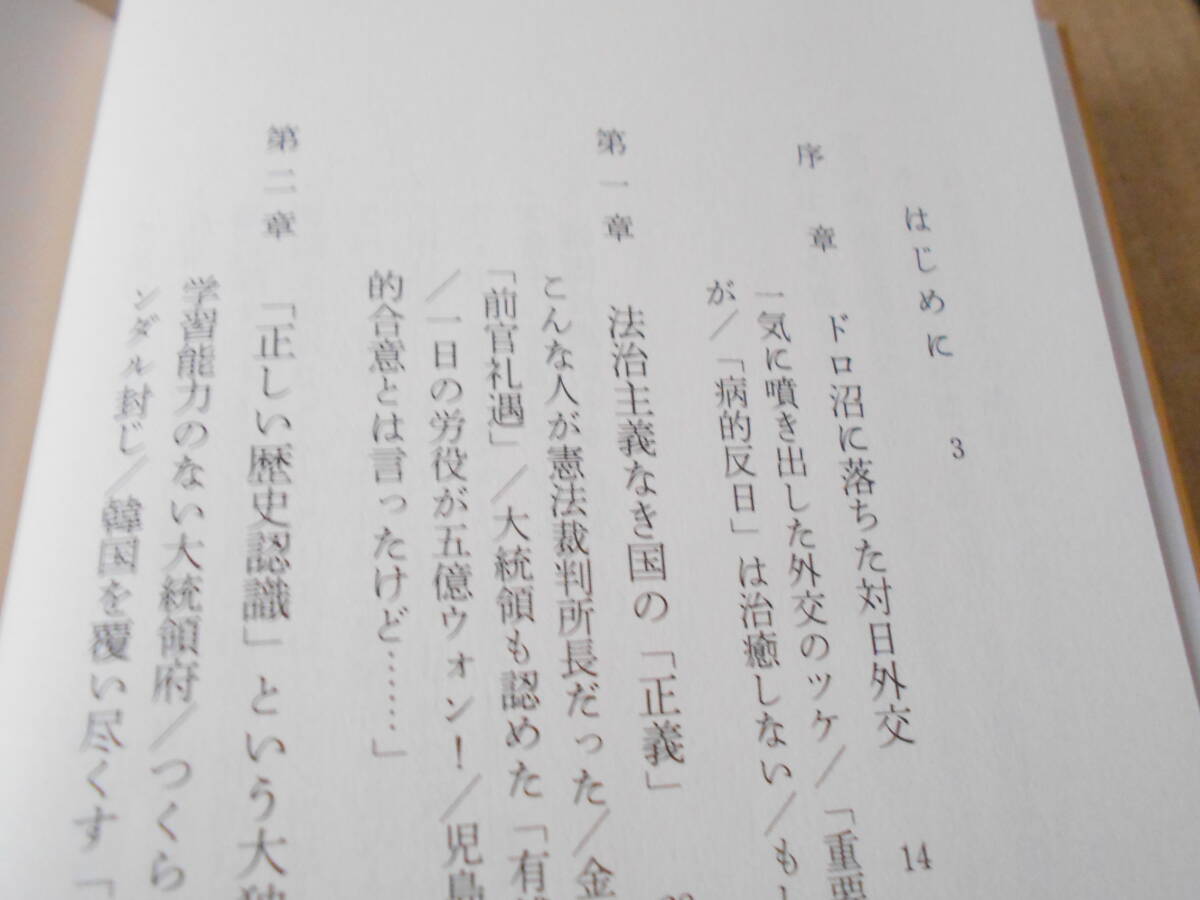 はじめに 3
序 章 ドロ沼に落ちた対日外交 14
一気に噴き出した外交のツケ/「重要
が/「病的反日」は治癒しない/もし
第一章 法治主義なき国の「正義」
こんな人が憲法裁判所長だった/金
「前官礼遇」/大統領も認めた「有
/一日の労役が五億ウォン!/児島
的合意とは言ったけど……」
第二章 「正しい歴史認識」という大独
学習能力のない大統領府/つくら
ンダル封じ/韓国を覆い尽くす「